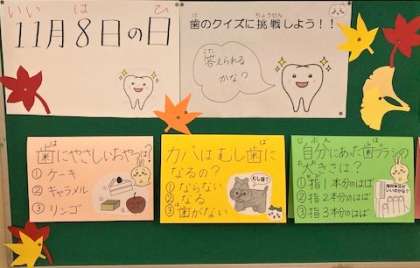 いい は ひ
11月8日の日
歯のクイズに挑戦しよう!!
答えられる
かな?
歯にやさしいおやつは?
① ケーキ
② キャラメル
③ リンゴ
カバはむし歯に
なるの?
①ならない
②なる
③歯がない
自分にあった歯ブラシの
大きさは?
①指1本分のはば
②指2本分のはば
③指3本分のはば